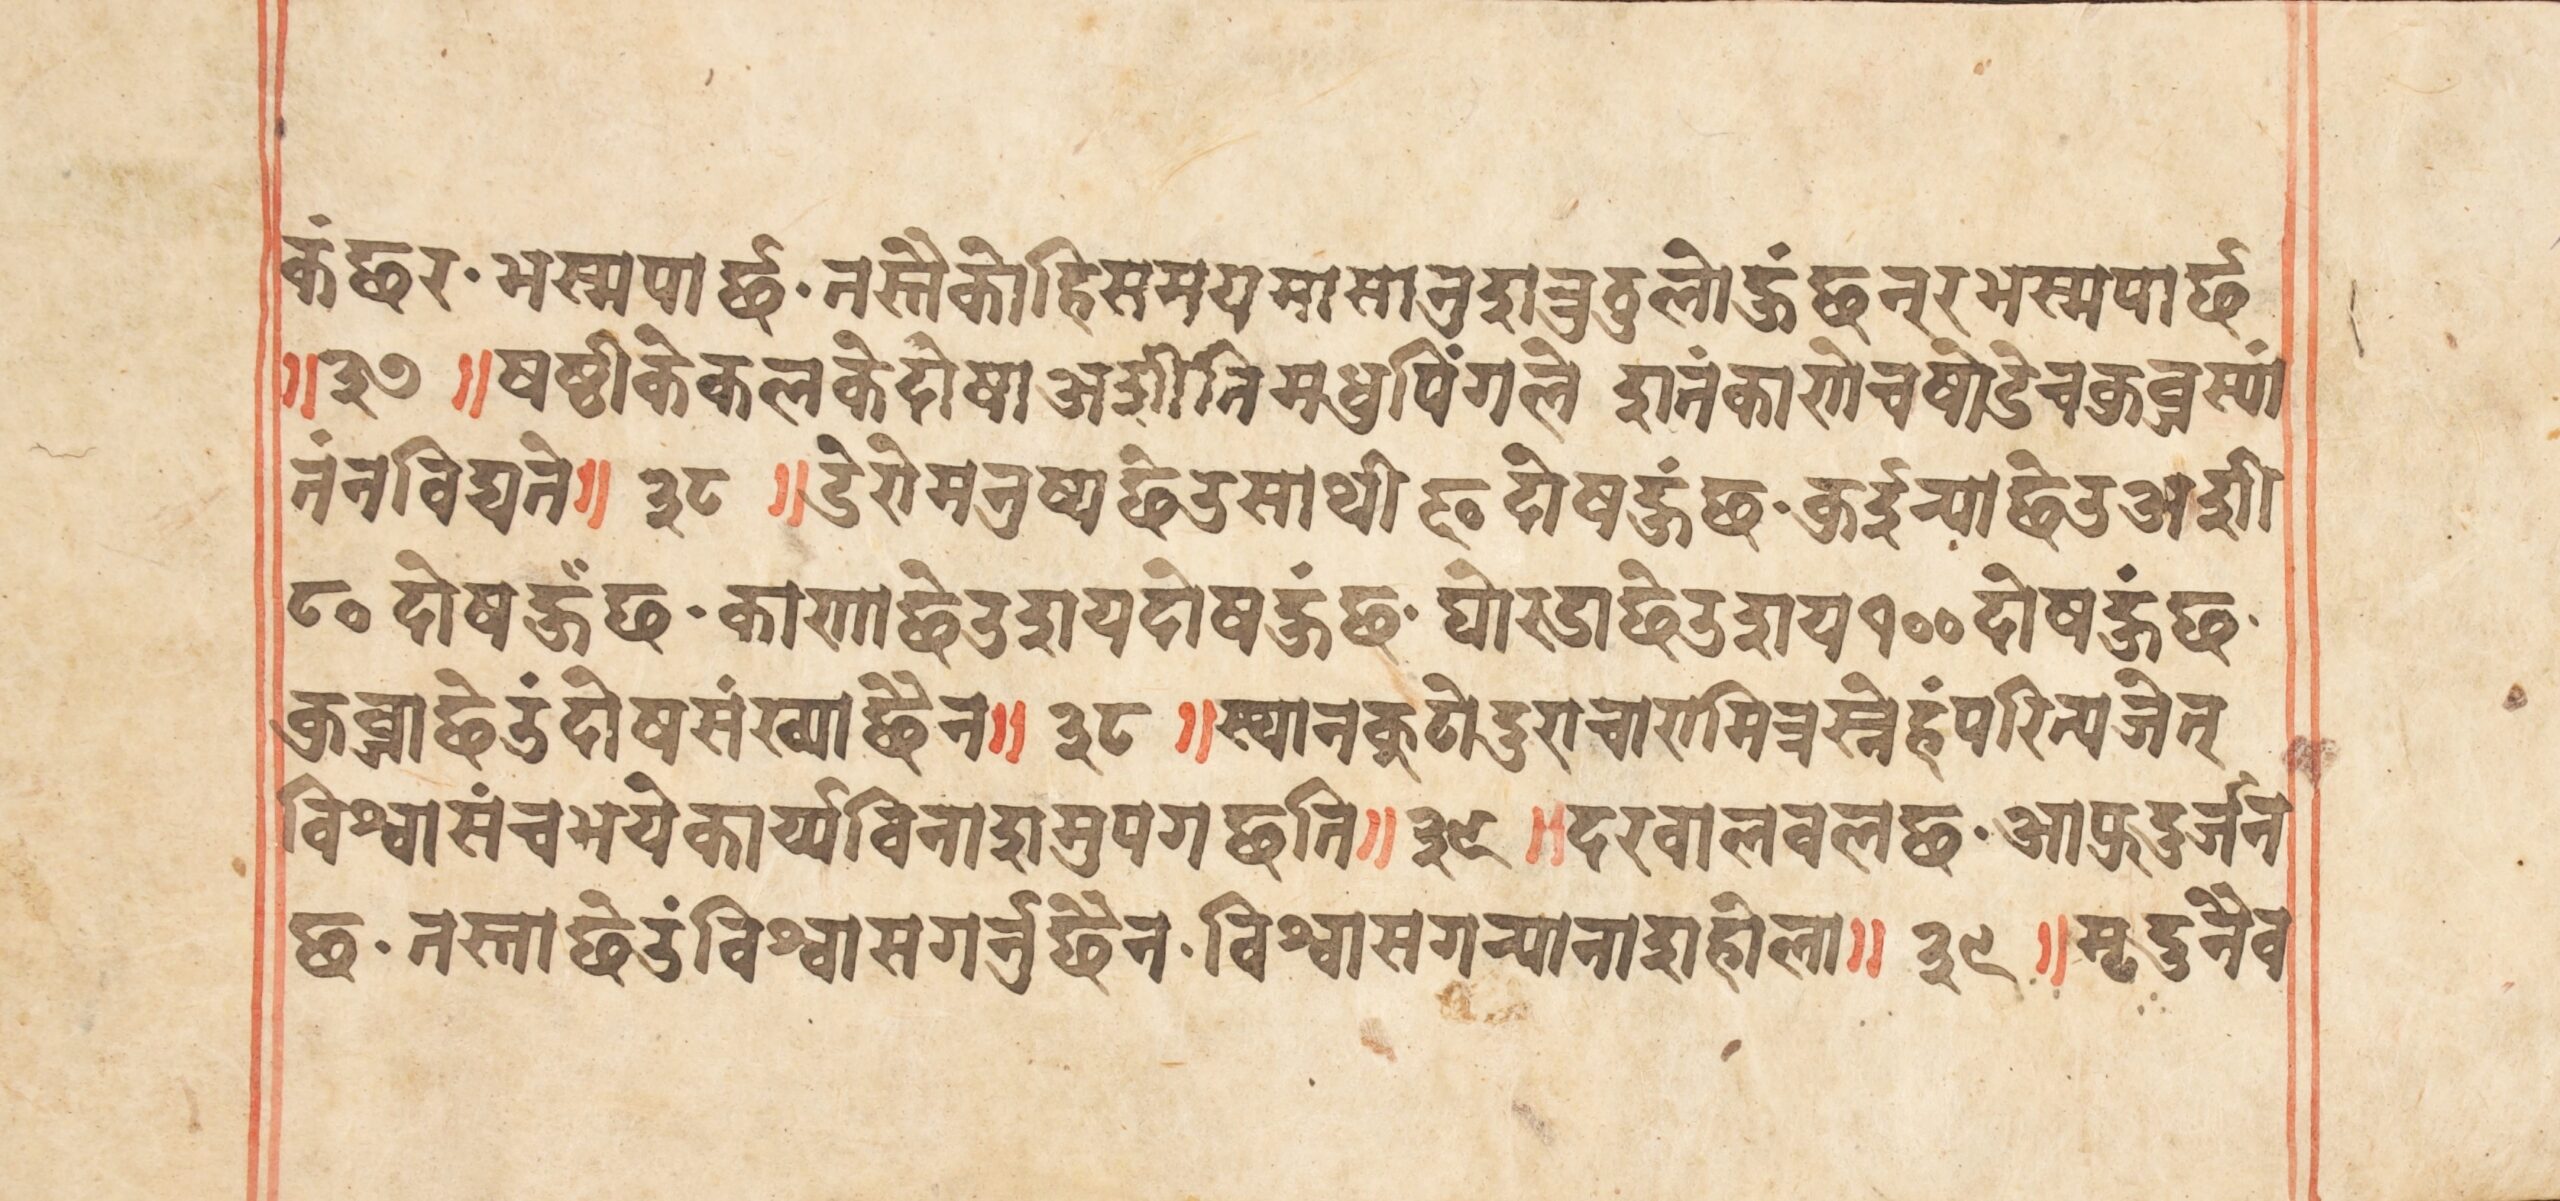 कंछर॰ भस्मपार्छ॰ नस्तैकोहिसमयमासानुशत्रुठुलोहुंछन्रभस्मपार्छ
॥३७ ॥षष्ठीकेकलकेदोषाअशीतिमधुपिंगले शतंकाणेचषोडेचकुब्जस्यां
तंनविद्यते॥ ३८ ॥डेरोमनुष्यछेउसाथी ६० दोषहुंछ॰ कुईन्याछेउअशी
८० दोषहुंछ॰ काणाछेउशयदोषहुंछ॰ षोरडाछेउशय१०० दोषहुंछ॰
कुब्जाछेउंदोषसंख्याछैन॥ ३८ ॥स्थानकुटोदुराचारामित्रस्नेहंपरित्यजेत्
विश्वासंचभयेकार्य्यविनाशमुपगछति॥ ३९ ॥दरवालवलछ॰ आफुदुर्जन
छ॰ तस्ताछेउंविश्वासगर्नुछैन॰ विश्वासगर्‍यानाशहोला॥ ३९ ॥मृदुनैव